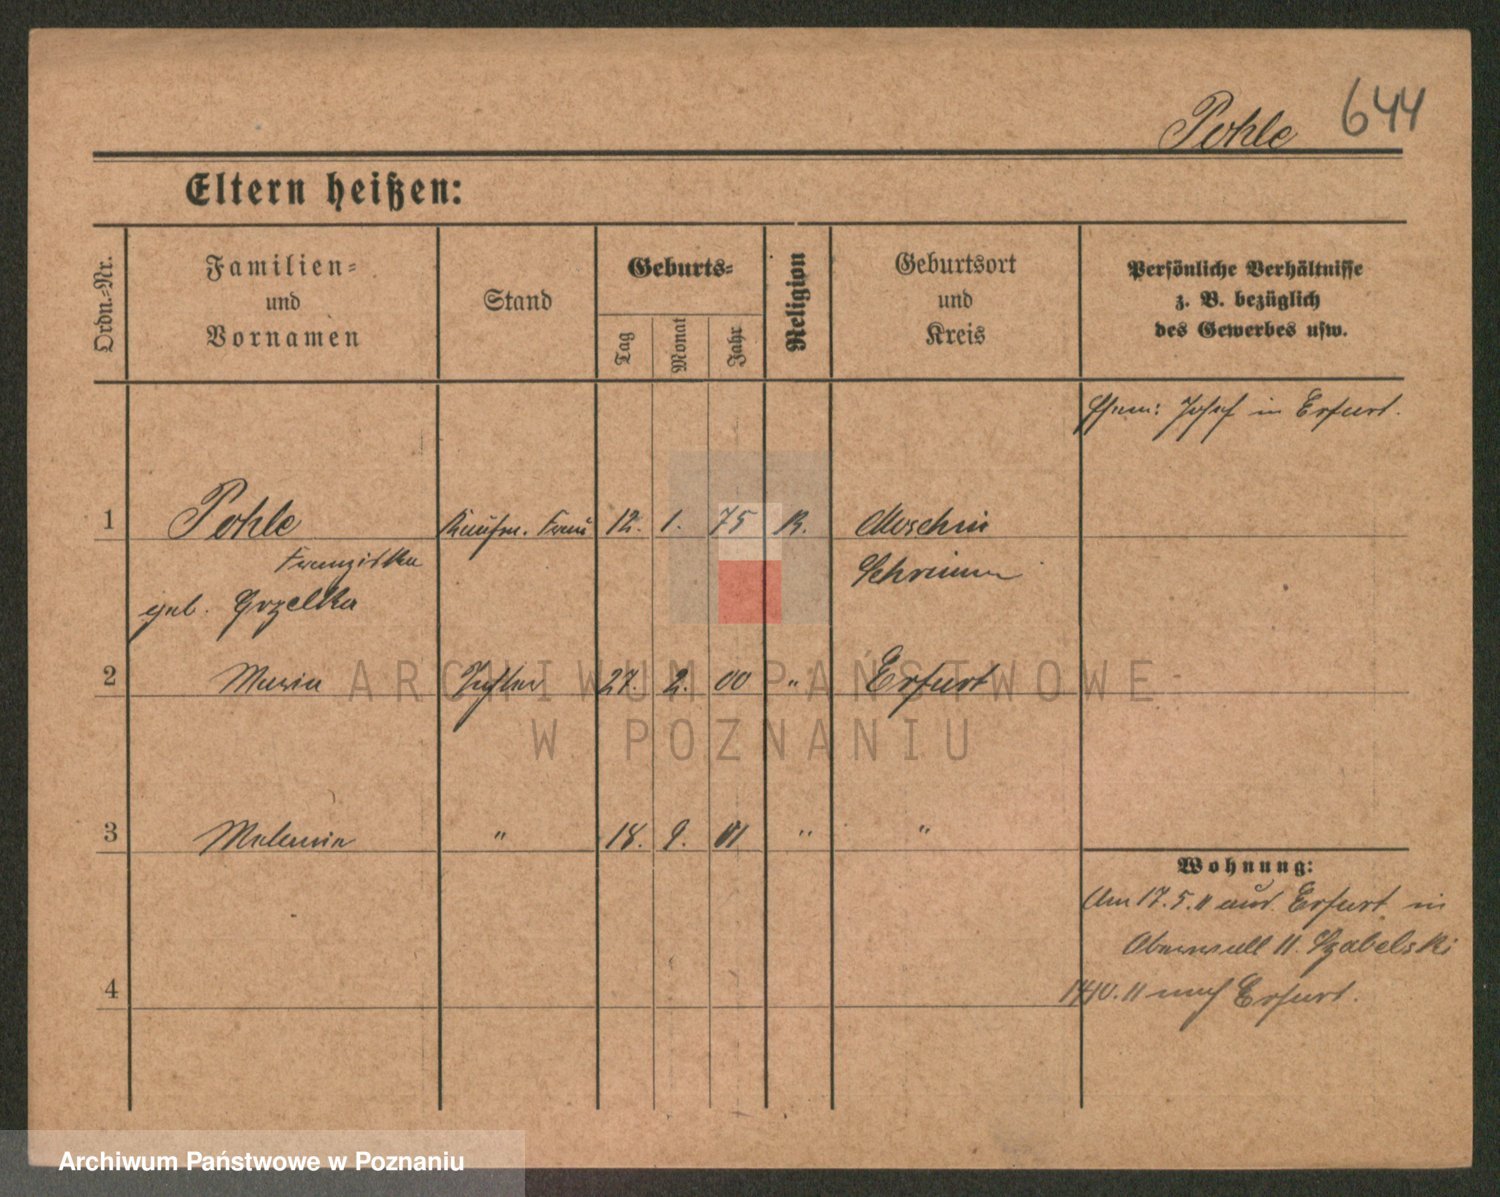 Pohle 644
Eltern heißen:
Ordn.-Nr.
Familien-
und
Vornamen
Stand
Geburts-
Tag
Monat
Jahr
Religion
Geburtsort
und
Kreis
Persönliche Verhältnisse
z. B. bezüglich
des Gewerbes usw.
Ehem: Josef in Erfurt.
1 Pohle Kaufm. Frau 12. 1. 75 K. Moschin
Franziska Schrimm
geb. Grzelka
2 Maria Tochter 27. 2. 00 " Erfurt
3 " 18. 9. 01 " "
Wohnung:
Am 17.5.11 aus Erfurt in
11. Szabelski
4
14/10.11 nach Erfurt.
ARCHIWUM PAŃSTWOWE
W POZNANIU
Archiwum Państwowe w Poznaniu